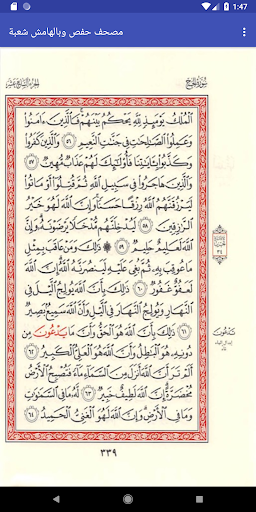 1:47
مصحف حفص وبالهامش شعبة
سُورَةُ الحَجِّ
الجُزْءُ السَّابِعَ عَشَرَ
ٱلْمُلْكُ يَوْمَئِذٍ لِّلَّهِ يَحْكُمُ بَيْنَهُمْ ۚ فَٱلَّذِينَ ءَامَنُوا۟
وَعَمِلُوا۟ ٱلصَّـٰلِحَـٰتِ فِى جَنَّـٰتِ ٱلنَّعِيمِ ٥٦ وَٱلَّذِينَ كَفَرُوا۟
وَكَذَّبُوا۟ بِـَٔايَـٰتِنَا فَأُو۟لَـٰٓئِكَ لَهُمْ عَذَابٌ مُّهِينٌ ٥٧
وَٱلَّذِينَ هَاجَرُوا۟ فِى سَبِيلِ ٱللَّهِ ثُمَّ قُتِلُوٓا۟ أَوْ مَاتُوا۟
لَيَرْزُقَنَّهُمُ ٱللَّهُ رِزْقًا حَسَنًا ۚ وَإِنَّ ٱللَّهَ لَهُوَ خَيْرُ
ٱلرَّٰزِقِينَ ٥٨ لَيُدْخِلَنَّهُم مُّدْخَلًا يَرْضَوْنَهُۥ ۗ وَإِنَّ
ٱللَّهَ لَعَلِيمٌ حَلِيمٌ ٥٩ ۞ ذَٰلِكَ وَمَنْ عَاقَبَ بِمِثْلِ
مَا عُوقِبَ بِهِۦ ثُمَّ بُغِىَ عَلَيْهِ لَيَنصُرَنَّهُ ٱللَّهُ ۗ إِنَّ ٱللَّهَ
لَعَفُوٌّ غَفُورٌ ٦٠ ذَٰلِكَ بِأَنَّ ٱللَّهَ يُولِجُ ٱلَّيْلَ
فِى ٱلنَّهَارِ وَيُولِجُ ٱلنَّهَارَ فِى ٱلَّيْلِ وَأَنَّ ٱللَّهَ سَمِيعٌۢ بَصِيرٌ
٦١ ذَٰلِكَ بِأَنَّ ٱللَّهَ هُوَ ٱلْحَقُّ وَأَنَّ مَا يَدْعُونَ مِن
دُونِهِۦ هُوَ ٱلْبَـٰطِلُ وَأَنَّ ٱللَّهَ هُوَ ٱلْعَلِىُّ ٱلْكَبِيرُ ٦٢
أَلَمْ تَرَ أَنَّ ٱللَّهَ أَنزَلَ مِنَ ٱلسَّمَآءِ مَآءً فَتُصْبِحُ ٱلْأَرْضُ
مُخْضَرَّةً ۗ إِنَّ ٱللَّهَ لَطِيفٌ خَبِيرٌ ٦٣ لَّهُۥ مَا فِى ٱلسَّمَـٰوَٰتِ
وَمَا فِى ٱلْأَرْضِ ۗ وَإِنَّ ٱللَّهَ لَهُوَ ٱلْغَنِىُّ ٱلْحَمِيدُ ٦٤
تَدْعُونَ
إبدال الياء
تاء
٣٣٩